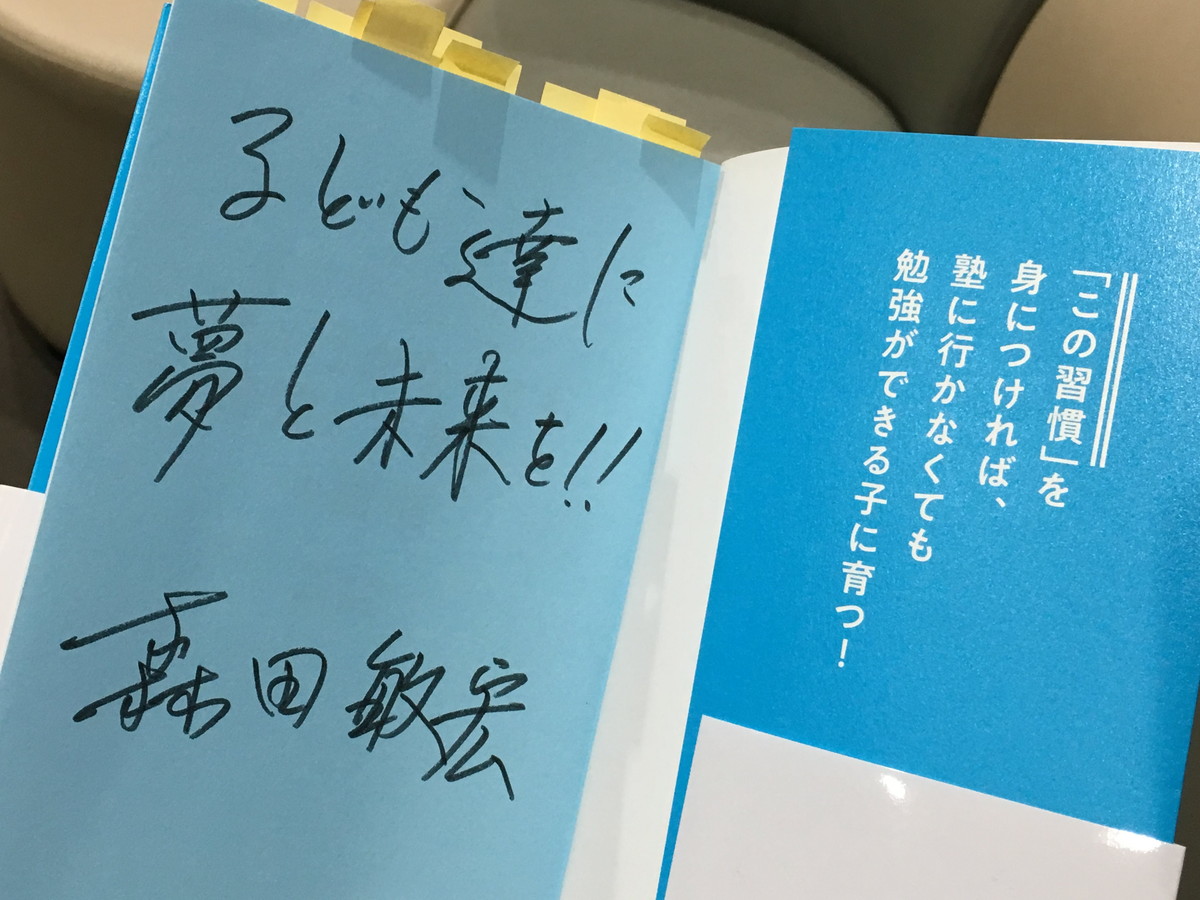 子ども達に
夢と未来を!!
森田敏宏
「この習慣」を
身につければ、
塾に行かなくても
勉強ができる子に育つ!